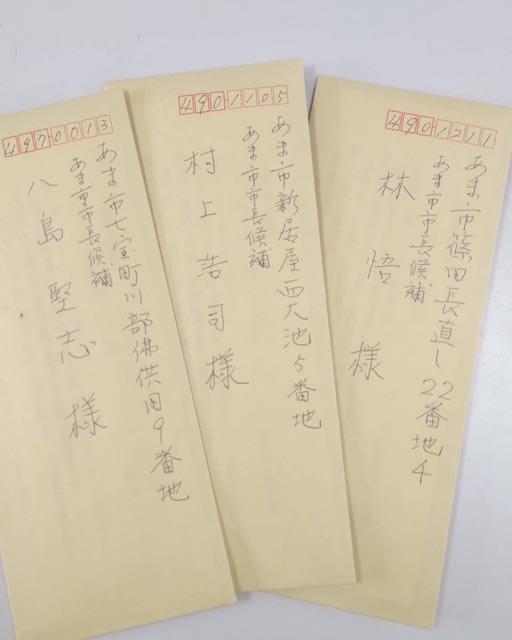 4970013
あま市七宝町川部佛供田9番地
あま市市長候補
八島堅志様
4901105
あま市新居屋西大池5番地
あま市市長候補
村上浩司様
4901211
あま市篠田長直し22番地4
あま市市長候補
林悟様